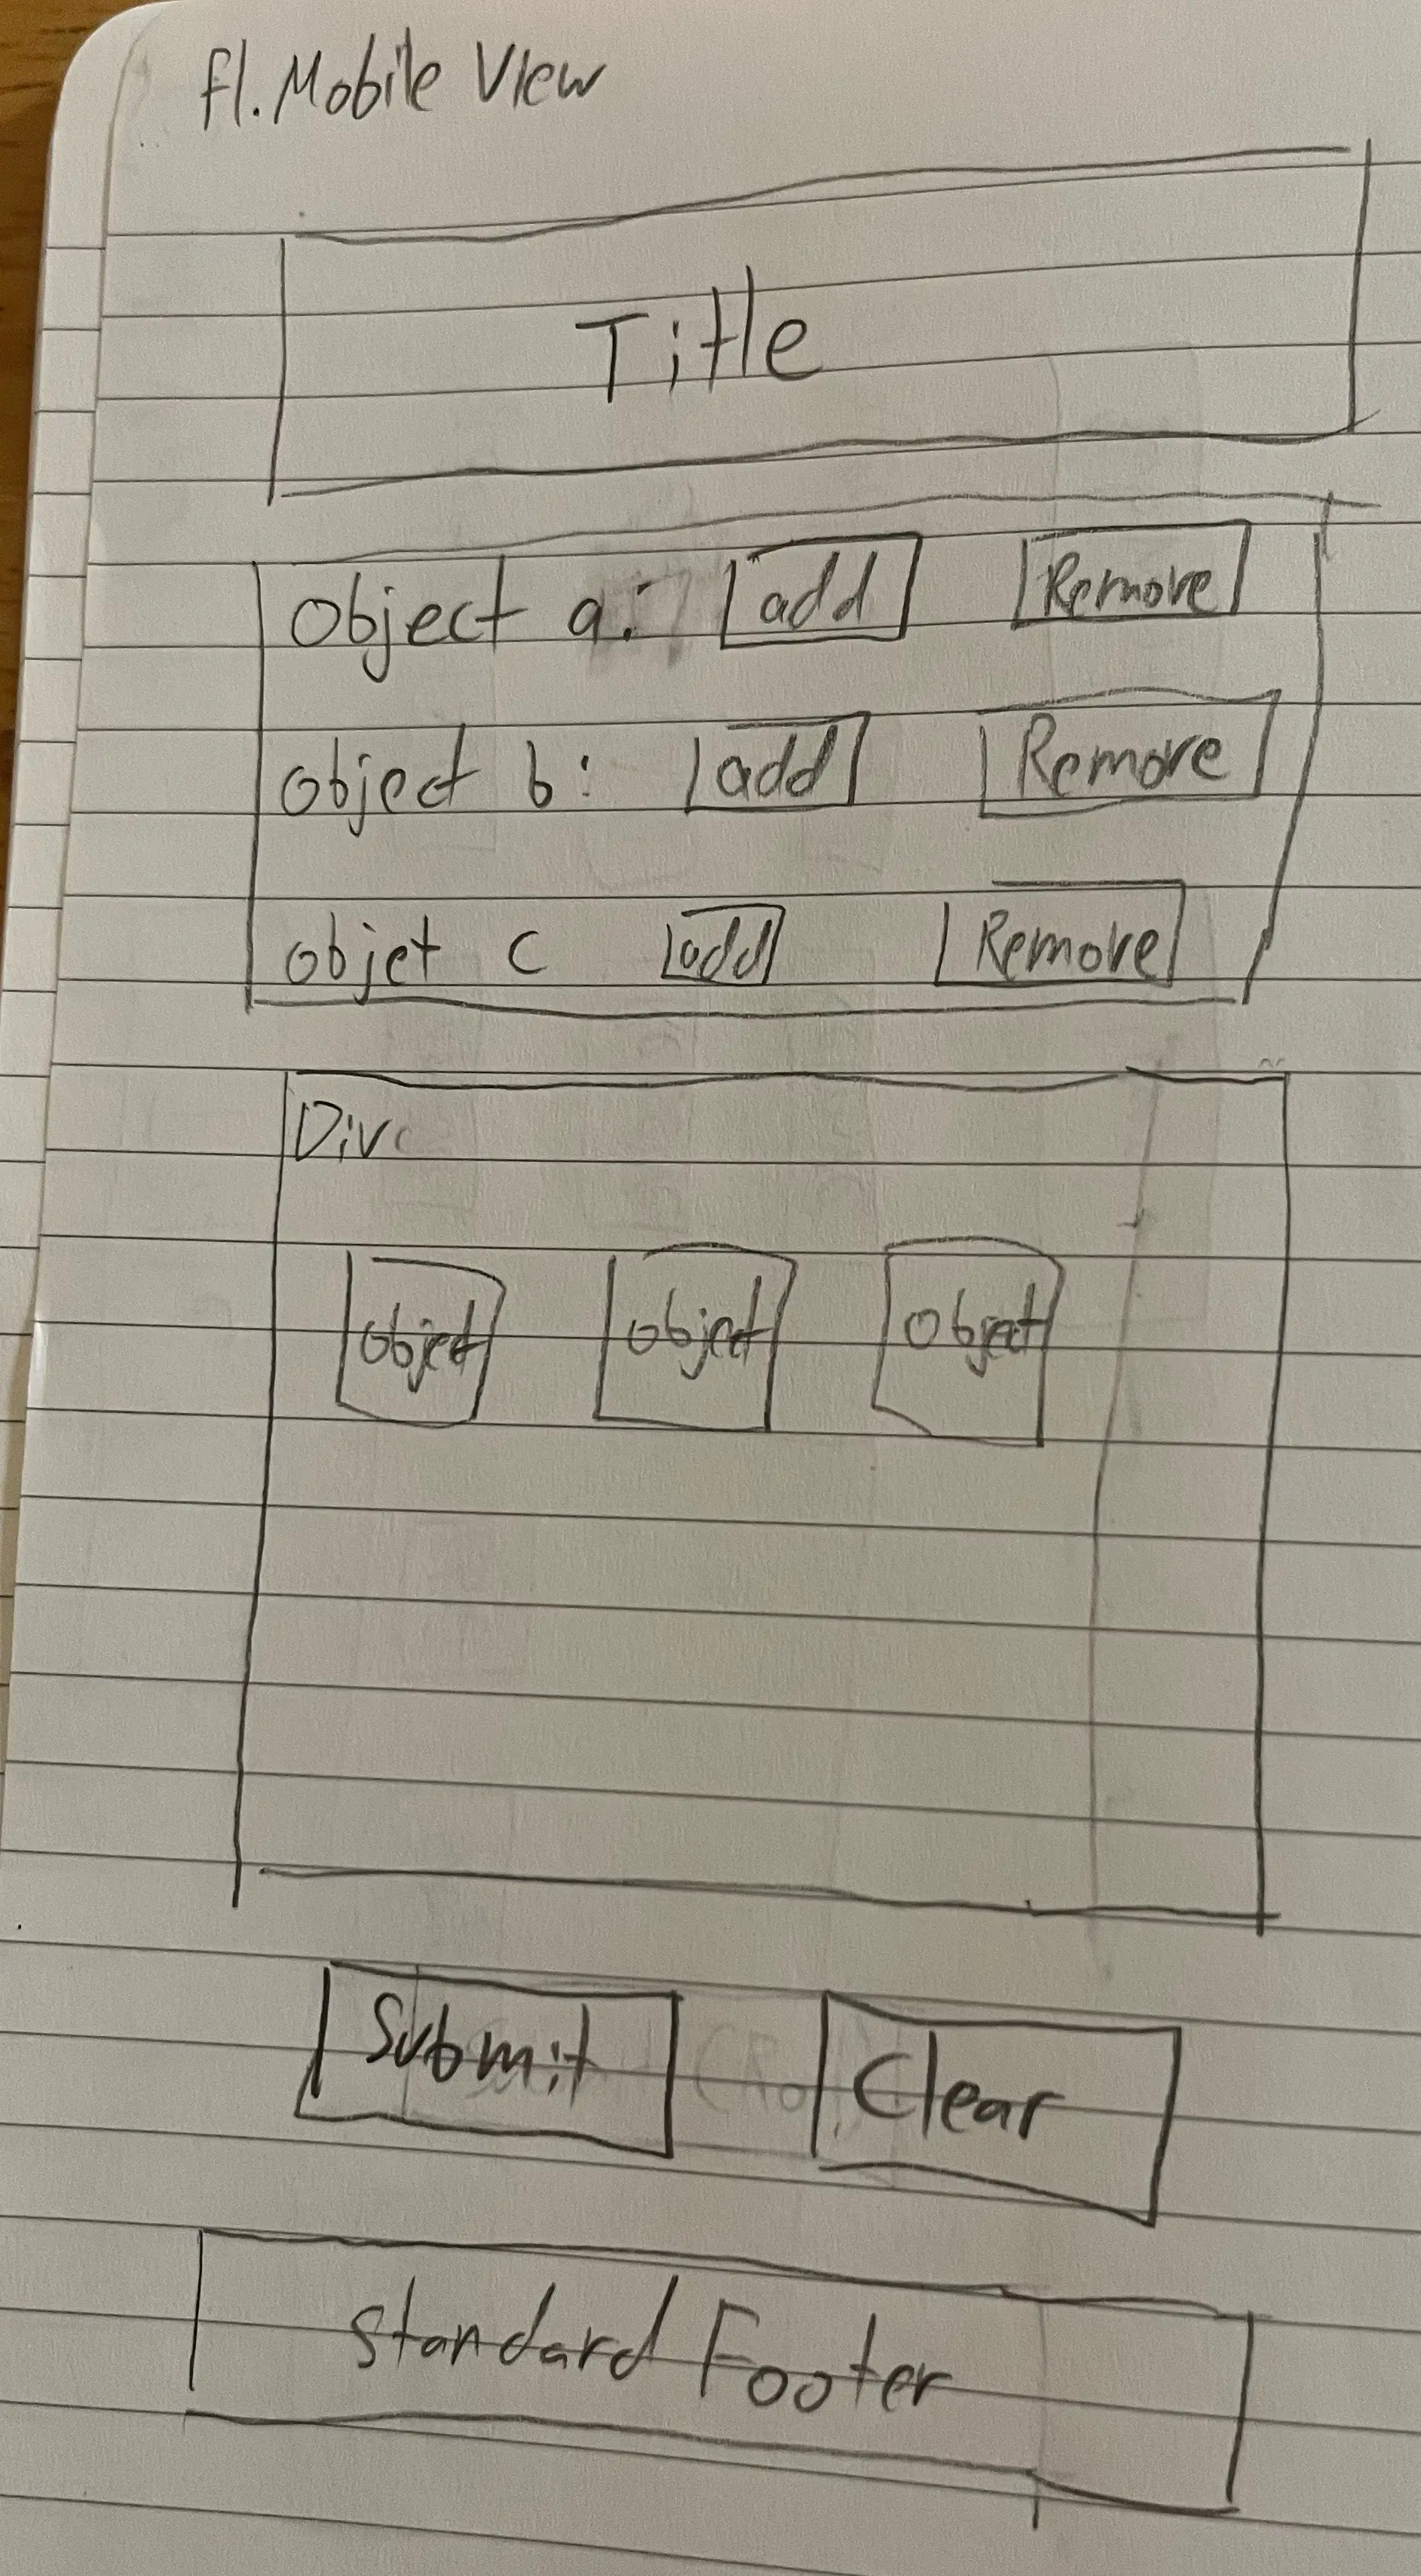 f1. Mobile View
Title
object a: add Remove
object b: add Remove
objet c add Remove
Div
object object object
Submit Clear
Standard Footer